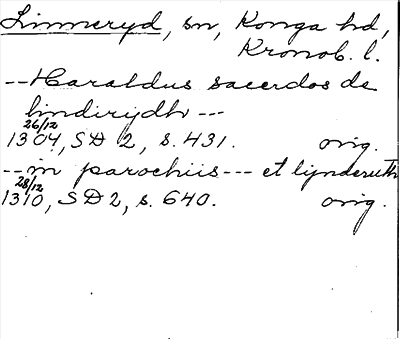 Linneryd, sn, Konga hd,
Kronob. l.
--Haraldus sacerdos de
lindirydh ---
26/12
1304, SD 2, s. 431. orig.
--in parochiis --- et lynderuth
28/12
1310, SD 2, s. 640. orig.